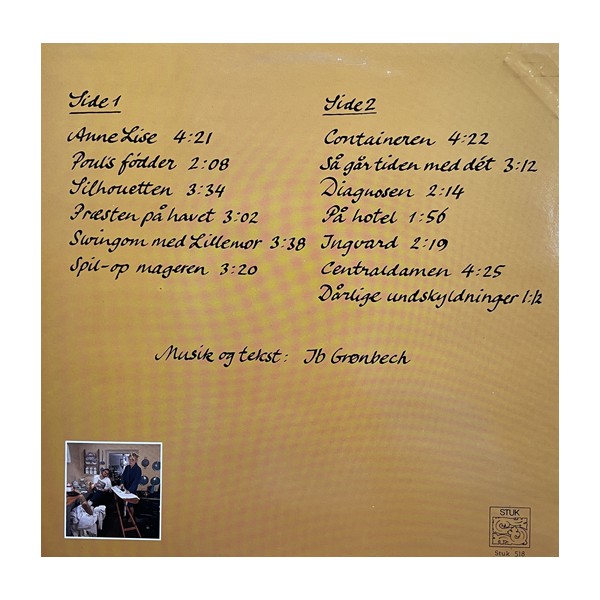 Side 1
Anne Lise 4:21
Pouls fødder 2:08
Silhouetten 3:34
Præsten på havet 3:02
Swingom med Lillemor 3:38
Spil-op mageren 3:20
Side 2
Containeren 4:22
Så går tiden med dét 3:12
Diagnosen 2:14
På hotel 1:56
Ingvard 2:19
Centraldamen 4:25
Dårlige undskyldninger 1:12
Musik og tekst: Ib Grønbech
STUK
Stuk 518